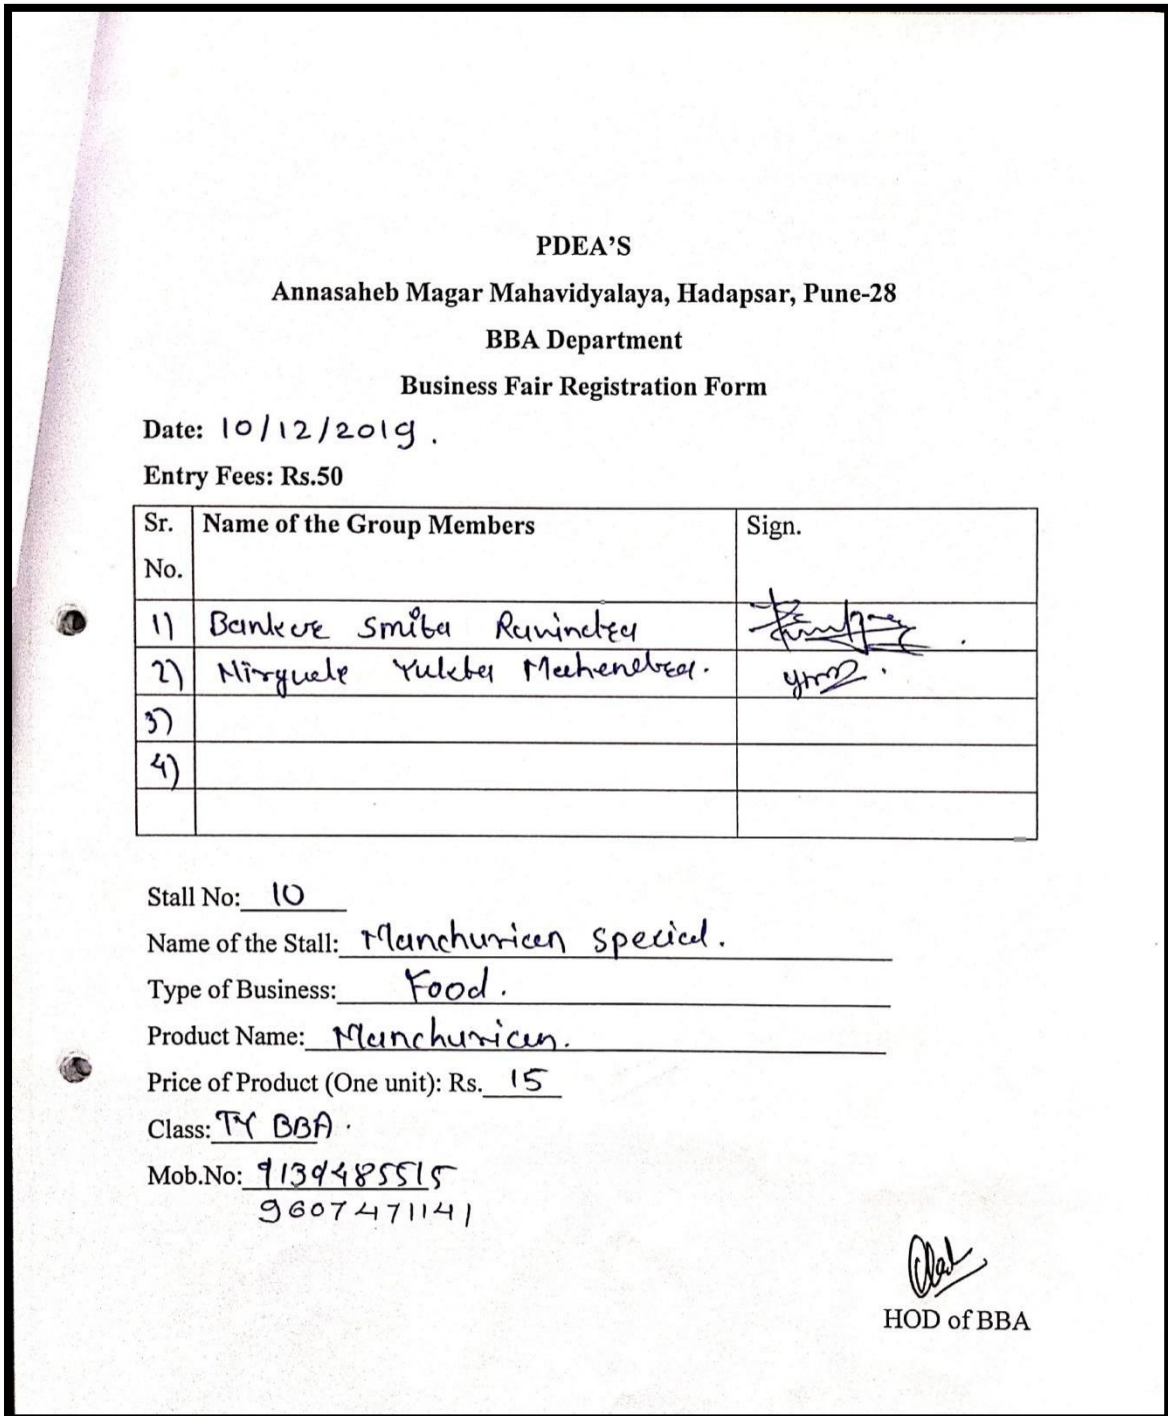 PDEA'S
Annasaheb Magar Mahavidyalaya, Hadapsar, Pune-28
BBA Department
Business Fair Registration Form
Date: 10/12/2019.
Entry Fees: Rs.50
Sr. No. Name of the Group Members Sign.
1) Smita Ravindra
2) Mahendra.
3)
4)
Stall No: 10
Name of the Stall: Manchurian special.
Type of Business: Food.
Product Name: Manchurian.
Price of Product (One unit): Rs. 15
Class: TY BBA.
Mob.No:
9607471141
HOD of BBA